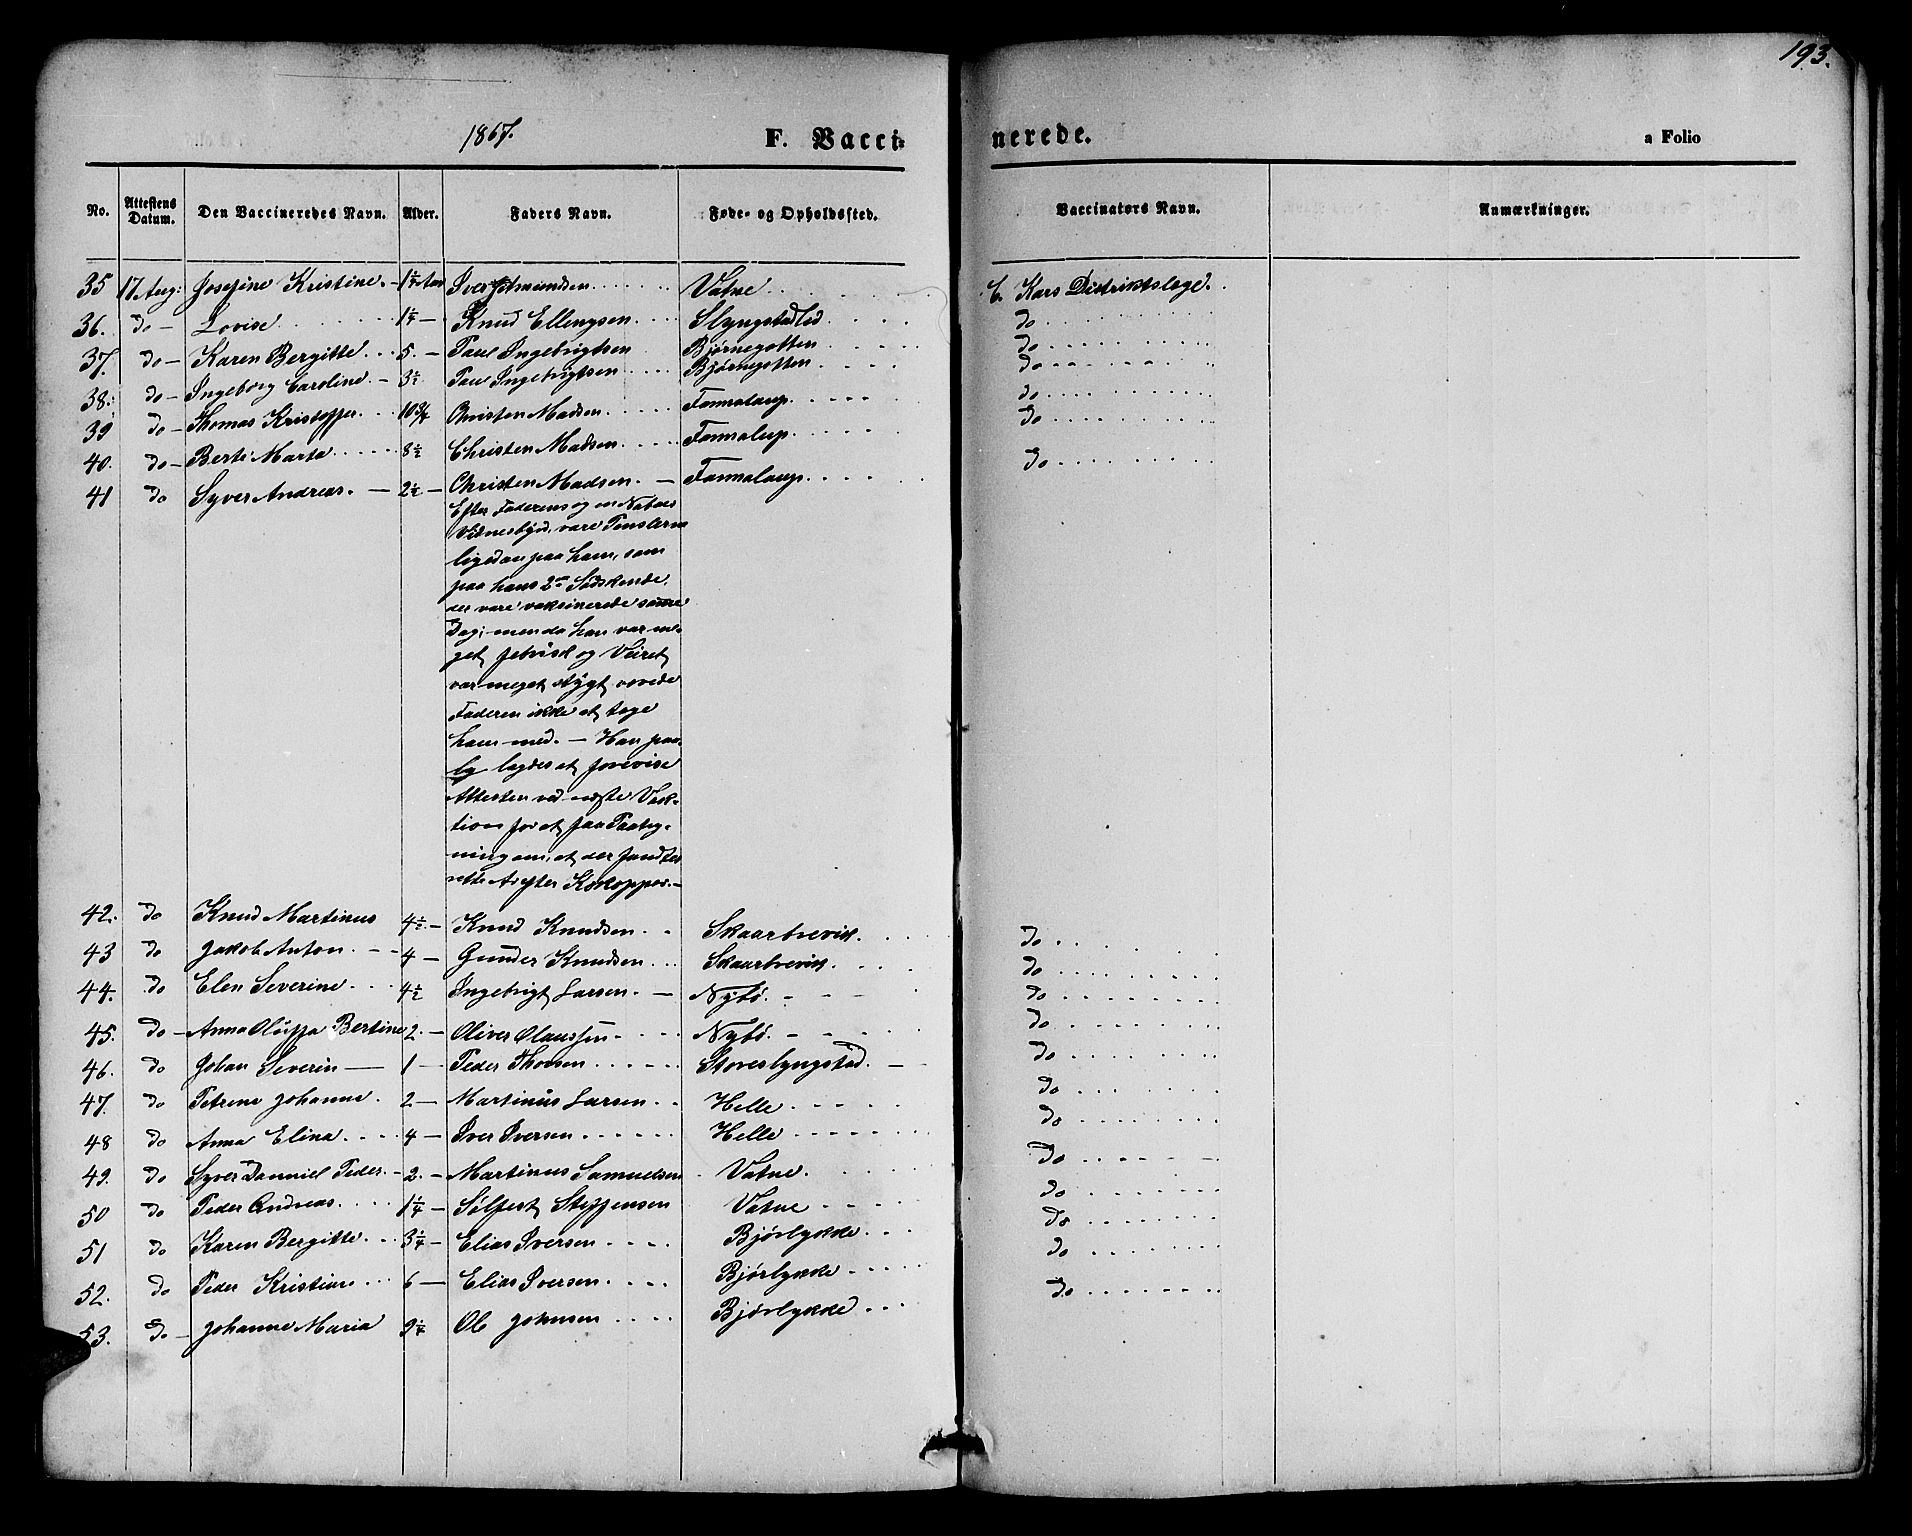 193.
1867. F. Vacci- nerede. a Folio
No. Attestens Datum. Den Vaccineredes Navn. Alder. Faders Navn. Føde- og Opholdssted. Vaccinators Navn. Anmærkninger.
35 17 Aug: Josefine Kristine. 1½ Aar Iver Vatne C. Kars Distriktslæge.
36. do Lovise 1¼ Knud Ellengsen Slyngstadlid do
37. do Karen Bergitte 5. Paul Ingebrigtsen Bjørnegotten do
38. do Ingeborg Caroline 3½ Paul Ingebrigtsen Bjørnegotten do
39 do Thomas Kristoffer 10 3/4 Christen Madsen do
40. do Berte Marta 8½ Christen Madsen do
41 do Syver Andreas 2½ Christen Madsen. do
Efter Faderens og en Naboes
Vidnesbyrd, vare Pustlerne
ligedan paa ham, som
paa hans 2de Sødskende,
der vare vaksinerede samme
Dag; men da han var me-
get og Veiret
var meget stygt vovede
Faderen ikke at tage
ham med. — Han paa-
lagdes at forevise
Attesten ved næste Vak-
tion for at faa Paateg-
ning om, at der fandtes
rette Ar efter Kokopper.—
42. do Knud Martinus 4½ Knud Knudsen Skaarbrevik. do
43 do Jakob Anton 4 Gunder Knudsen Skaarbrevik do
44. do Elen Severine 4½ Ingebrigt Larsen Nybø. do
45. do Anna Oluffa Bertine 2 Oliver Olaussen Nybø do
46. do Johan Severin 1 Peder Thorsen Storeslyngstad. do
47. do Petrine Johanne 2 Martinus Larsen Helle do
48 do Anna Elina 4 Iver Iversen Helle do
49. do Syver Danniel Peder 2 Martinus Samuelsen Vatne. do
50 do Peder Andreas 1¼ Sølfest Steffensen Vatne do
51 do Karen Bergitte 3¼ Elias Iversen Bjørlykke do
52. do Peder Kristian 6 Elias Iversen Bjørlykke do
53. do Johanne Maria 9¼ Ole Johnsen Bjørlykke do